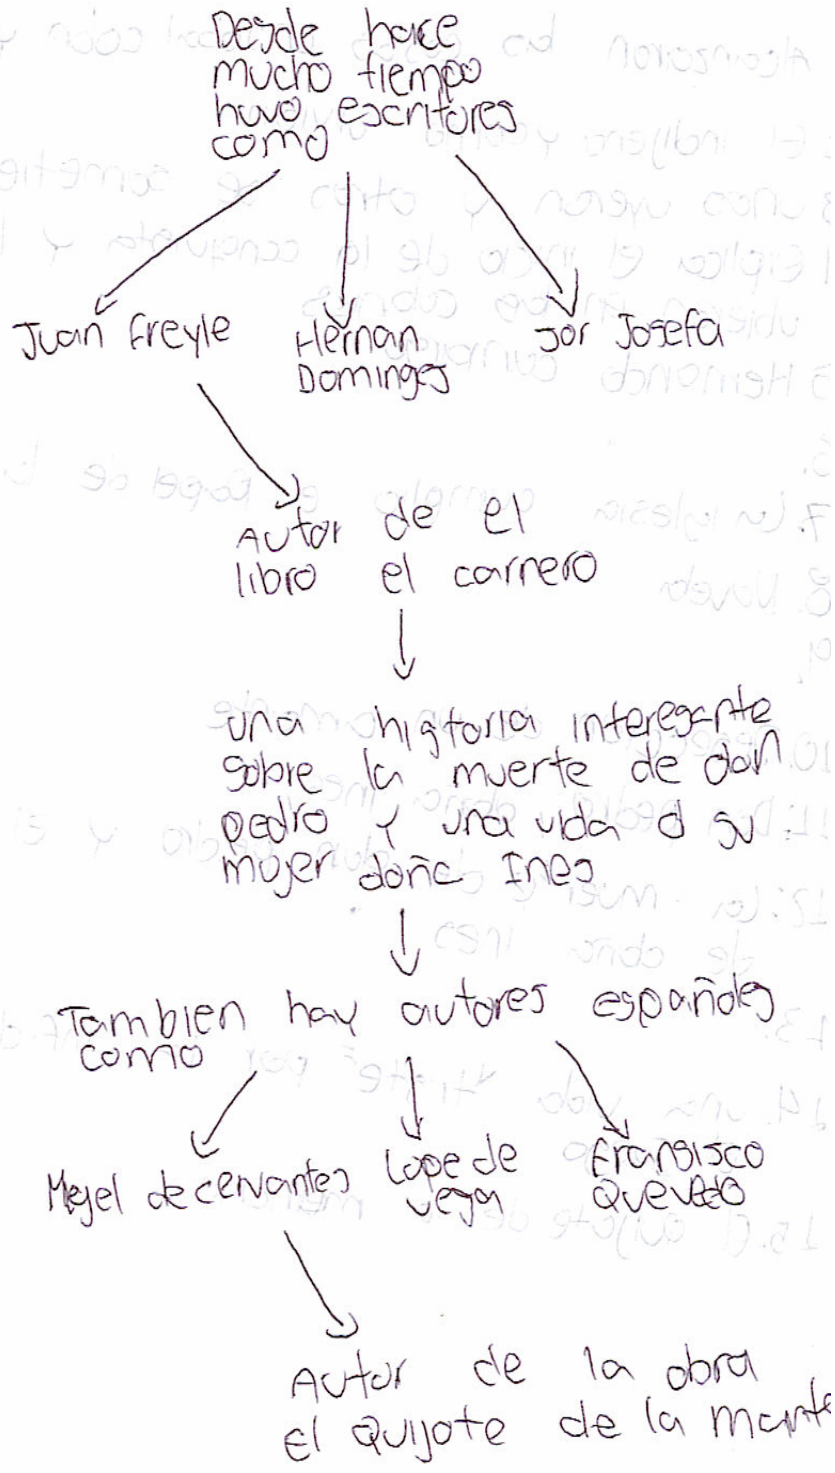 Desde hace
mucho tiempo
huvo escritores
como
Juan Freyle
Hernan
Domingez
Sor Josefa
Autor de el
libro el carnero
una historia interesante
sobre la muerte de don
pedro y una vida d su
mujer doña Ines
Tambien hay autores españoles
como
Megel de cervantes
Lope de
vega
Fransisco
Quevedo
Autor de la obra
El Quijote de la